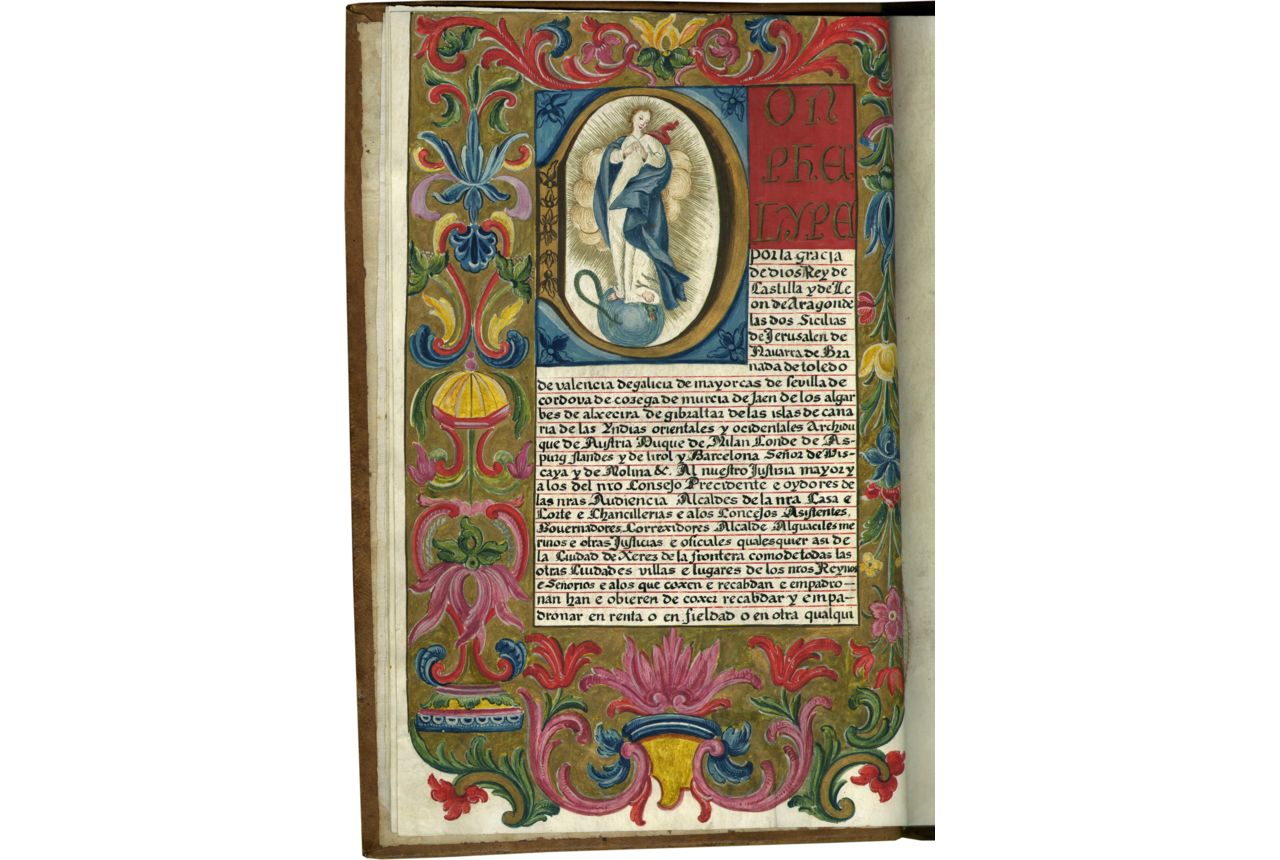 DON
PHE
LYPE
por la gracia
de dios Rey de
Castilla y de Le
on de Aragon de
las dos Sicilias
de Jerusalen de
Navarra de Gra
nada de toledo
de valencia de galicia de mayorcas de sevilla de
cordova de corega de murcia de Jaen de los algar
bes de alxecira de gibraltar de las islas de cana
ria de las Yndias orientales y ocidentales Archidu
que de Austria Duque de Milan Conde de As-
purg flandes y de tirol y Barcelona Señor de Vis-
caya y de Molina &c. Al nuestro Justizia mayor y
a los del nro Consejo Precidente e oydores de
las nras Audiencia Alcaldes de la nra Casa e
Corte e Chancillerias e a los Concejos Asistentes,
Governadores, Correxidores Alcalde Alguaciles me
rinos e otras Justicias e oficiales qualesquier asi de
la Ciudad de Xerez de la frontera como de todas las
otras Ciudades villas e lugares de los nros Reynos
e Señorios e alos que coxen e recabdan e empadro-
nan han e obieren de coxer recabdar y empa-
dronar en renta o en fieldad o en otra qualqui